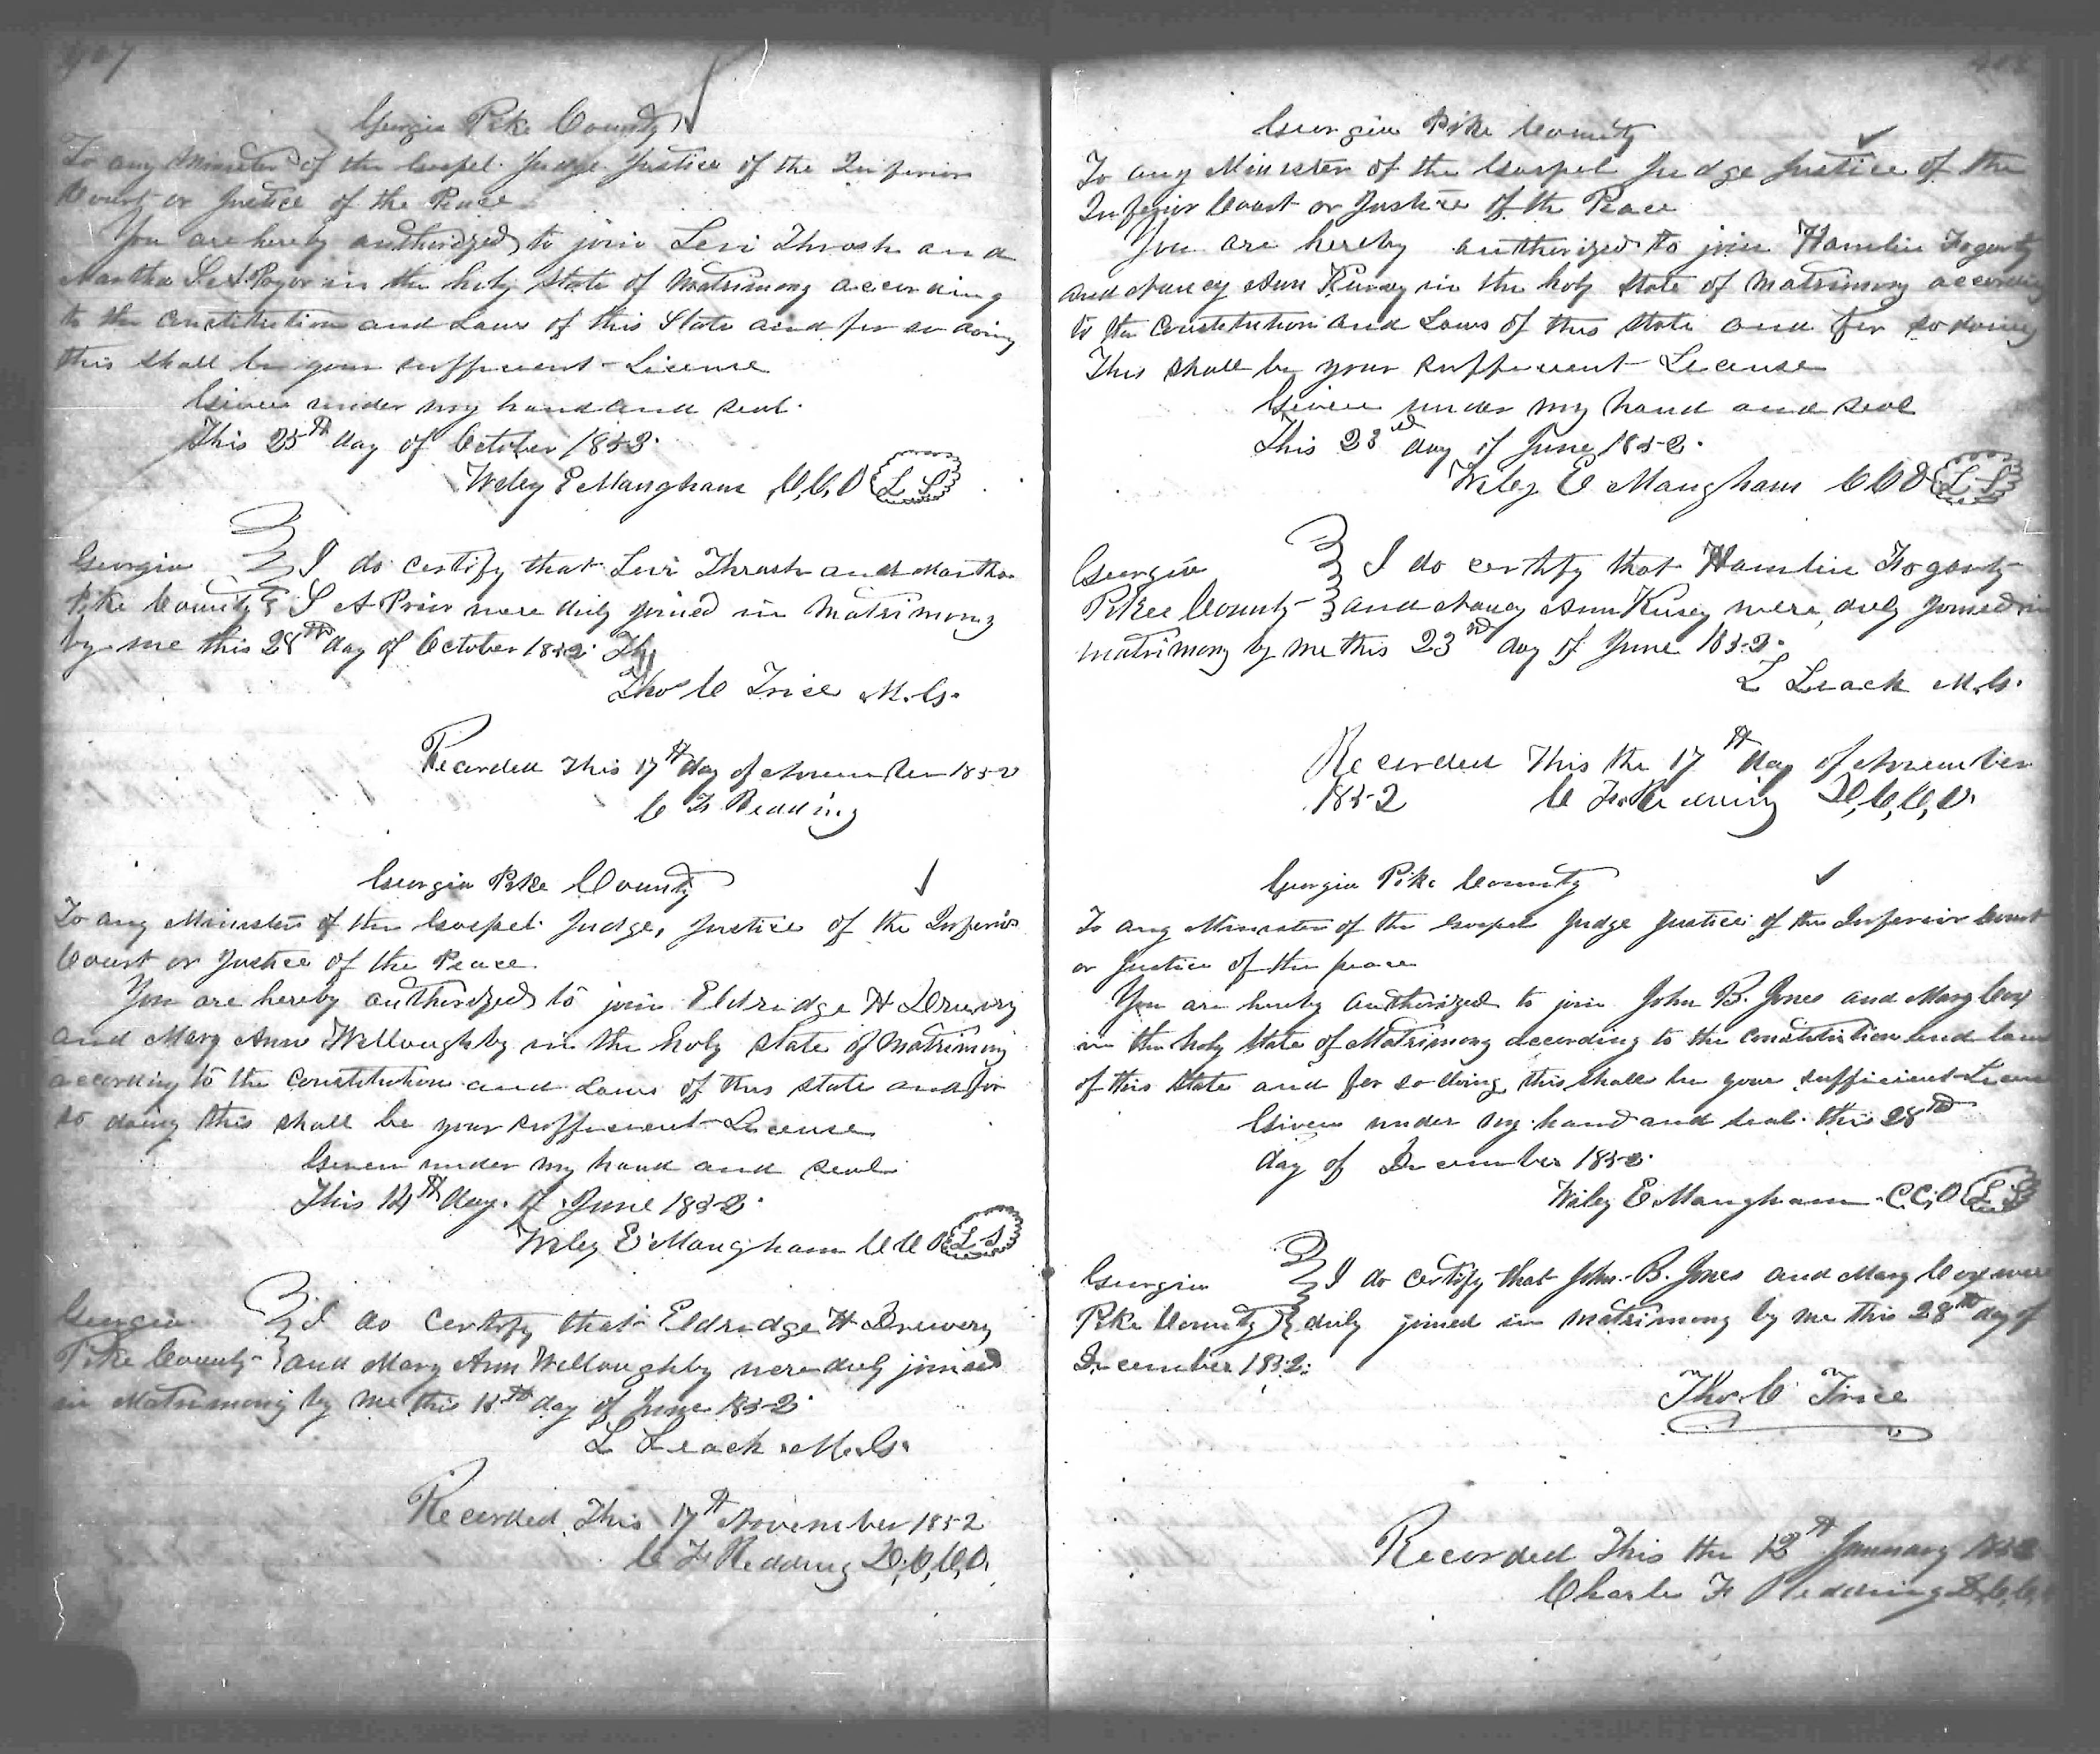 407
Georgia Pike County
To any Minister of the Gospel Judge Justice of the Inferior
Court or Justice of the Peace
You are hereby authorized to join Levi Thrash and
Martha S. A. Pryor in the holy State of Matrimony according
to the Constitution and Laws of this State and for so doing
this shall be your sufficient License
Given under my hand and seal
This 25th day of October 1852
Wiley E Mangham C,C,O L S
Georgia I do certify that Levi Thrash and Martha
Pike County S A Prior were duly joined in Matrimony
by me this 28th day of October 1852 Th
Thos C Trice M.G.
Recorded This 17th day of November 1852
C F Redding
Georgia Pike County
To any Minister of the Gospel Judge, Justice of the Inferior
Court or Justice of the Peace
You are hereby authorized to join Eldridge H Drewry
and Mary Ann Willoughby in the holy State of Matrimony
according to the Constitution and Laws of this State and for
so doing this shall be your sufficient License
Given under my hand and seal
This 14th day of June 1852
Wiley E Mangham C C O L S
Georgia I do certify that Eldridge H Drewery
Pike County and Mary Ann Willoughby were duly joined
in Matrimony by me this day of June 1852
L Leach M.G.
Recorded This 17th November 1852
C F Redding D,C,C,O,
Georgia Pike County
To any Minister of the Gospel Judge Justice of the
Inferior Court or Justice of the Peace
You are hereby authorized to join Hamlin Fogarty
and Nancy Ann Kersey in the holy State of Matrimony according
to the Constitution and Laws of this State and for so doing
This shall be your sufficient License
Given under my hand and seal
This 23rd day of June 1852
Wiley E Mangham C C O L S
Georgia I do certify that Hamlin Fogarty
Pike County and Nancy Ann Kersey were duly joined in
matrimony by me this 23rd day of June 1852
L Leach M.G.
Recorded This the 17th day of November
1852 C F Redding D,C,C,O,
Georgia Pike County
To any Minister of the Gospel Judge Justice of the Inferior Court
or Justice of the peace
You are hereby authorized to join John B. Jones and Mary Cox
in the holy State of Matrimony according to the Constitution and laws
of this State and for so doing this shall be your sufficient License
Given under my hand and seal this 28th
day of December 1852
Wiley E Mangham C.C,O L S
Georgia I do certify that John B. Jones and Mary Cox were
Pike County duly joined in matrimony by me this 28th day of
December 1852
Thos C Trice
Recorded This the 12th January
Charles F Redding D,C,C,